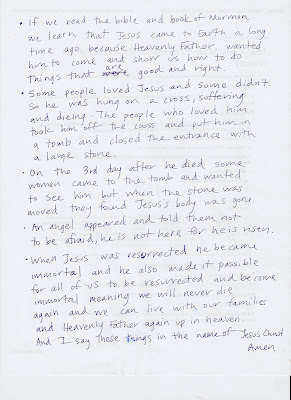 • If we read the bible and book of Mormon
we learn that Jesus came to Earth a long
time ago because Heavenly Father wanted
him to come and show us how to do
things that were are good and right.
• Some people loved Jesus and some didn't.
So he was hung on a cross, suffering
and dieing. The people who loved him
took him off the cross and put him in
a tomb and closed the entrance with
a large stone.
• On the 3rd day after he died some
women came to the tomb and wanted
to see him but when the stone was
moved they found Jesus's body was gone.
• An angel appeared and told them not
to be afraid, he is not here for he is risen.
• When Jesus was resurrected he became
immortal and he also made it possible
for all of us to be resurrected and become
immortal meaning we will never die
again and we can live with our families
and Heavenly Father again up in heaven.
And I say these things in the name of Jesus Christ
Amen